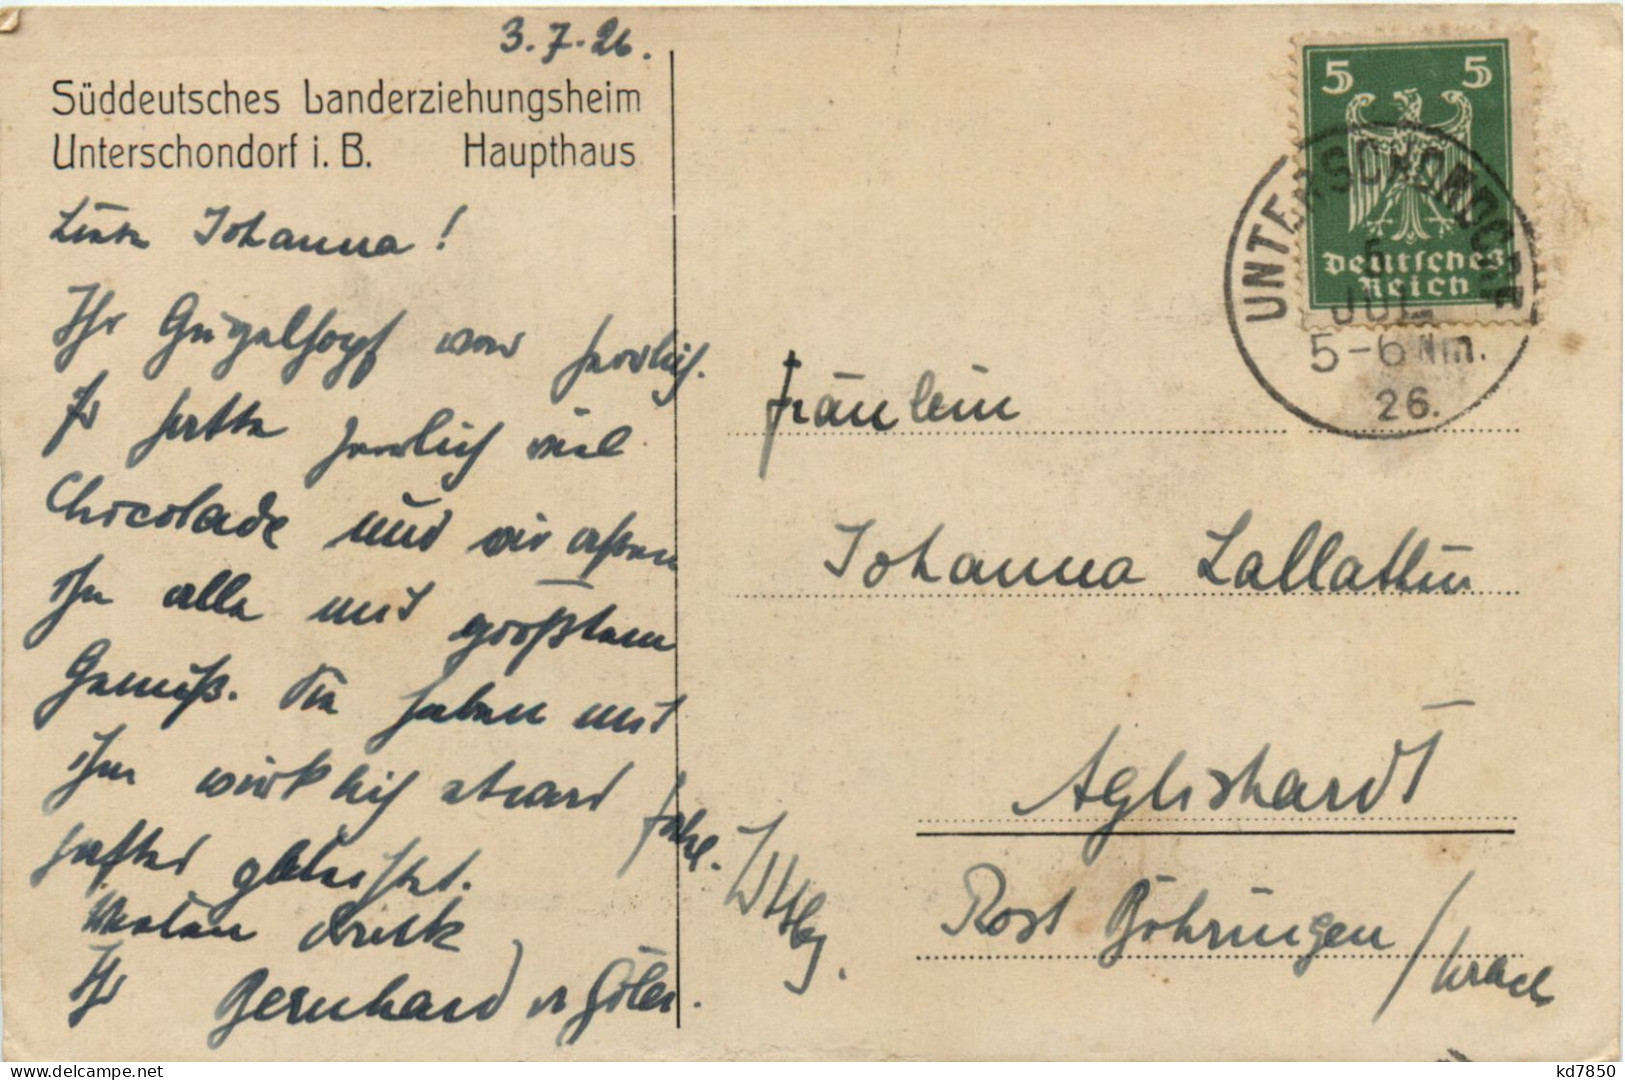 3.7.26.
Süddeutsches Landerziehungsheim
Unterschondorf i. B. Haupthaus
Liebe Johanna!
Ihr Gugelhopf war herrlich.
Er hatte herrlich viel
Chocolade und wir assen
ihn alle mit größtem
Genuß. Sie haben mit
ihm wirklich etwas
geleistet.
Vielen Dank
Ihr Bernhard
5 5
Deutsches
Reich
UNTERSCHONDORF
5
JUL
5-6 Nm.
26.
Fräulein
Johanna Lallathin
Aglishardt
Post Böhringen / Urach
Wttbg.
kd7850